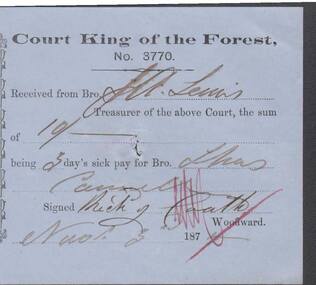 Court King of the Forest,
No. 3770.
Received from Bro. Lewis
Treasurer of the above Court, the sum
of 10/
being 3 day's sick pay for Bro. Thos
Signed Rich d
Woodward.
Nov. 3 187